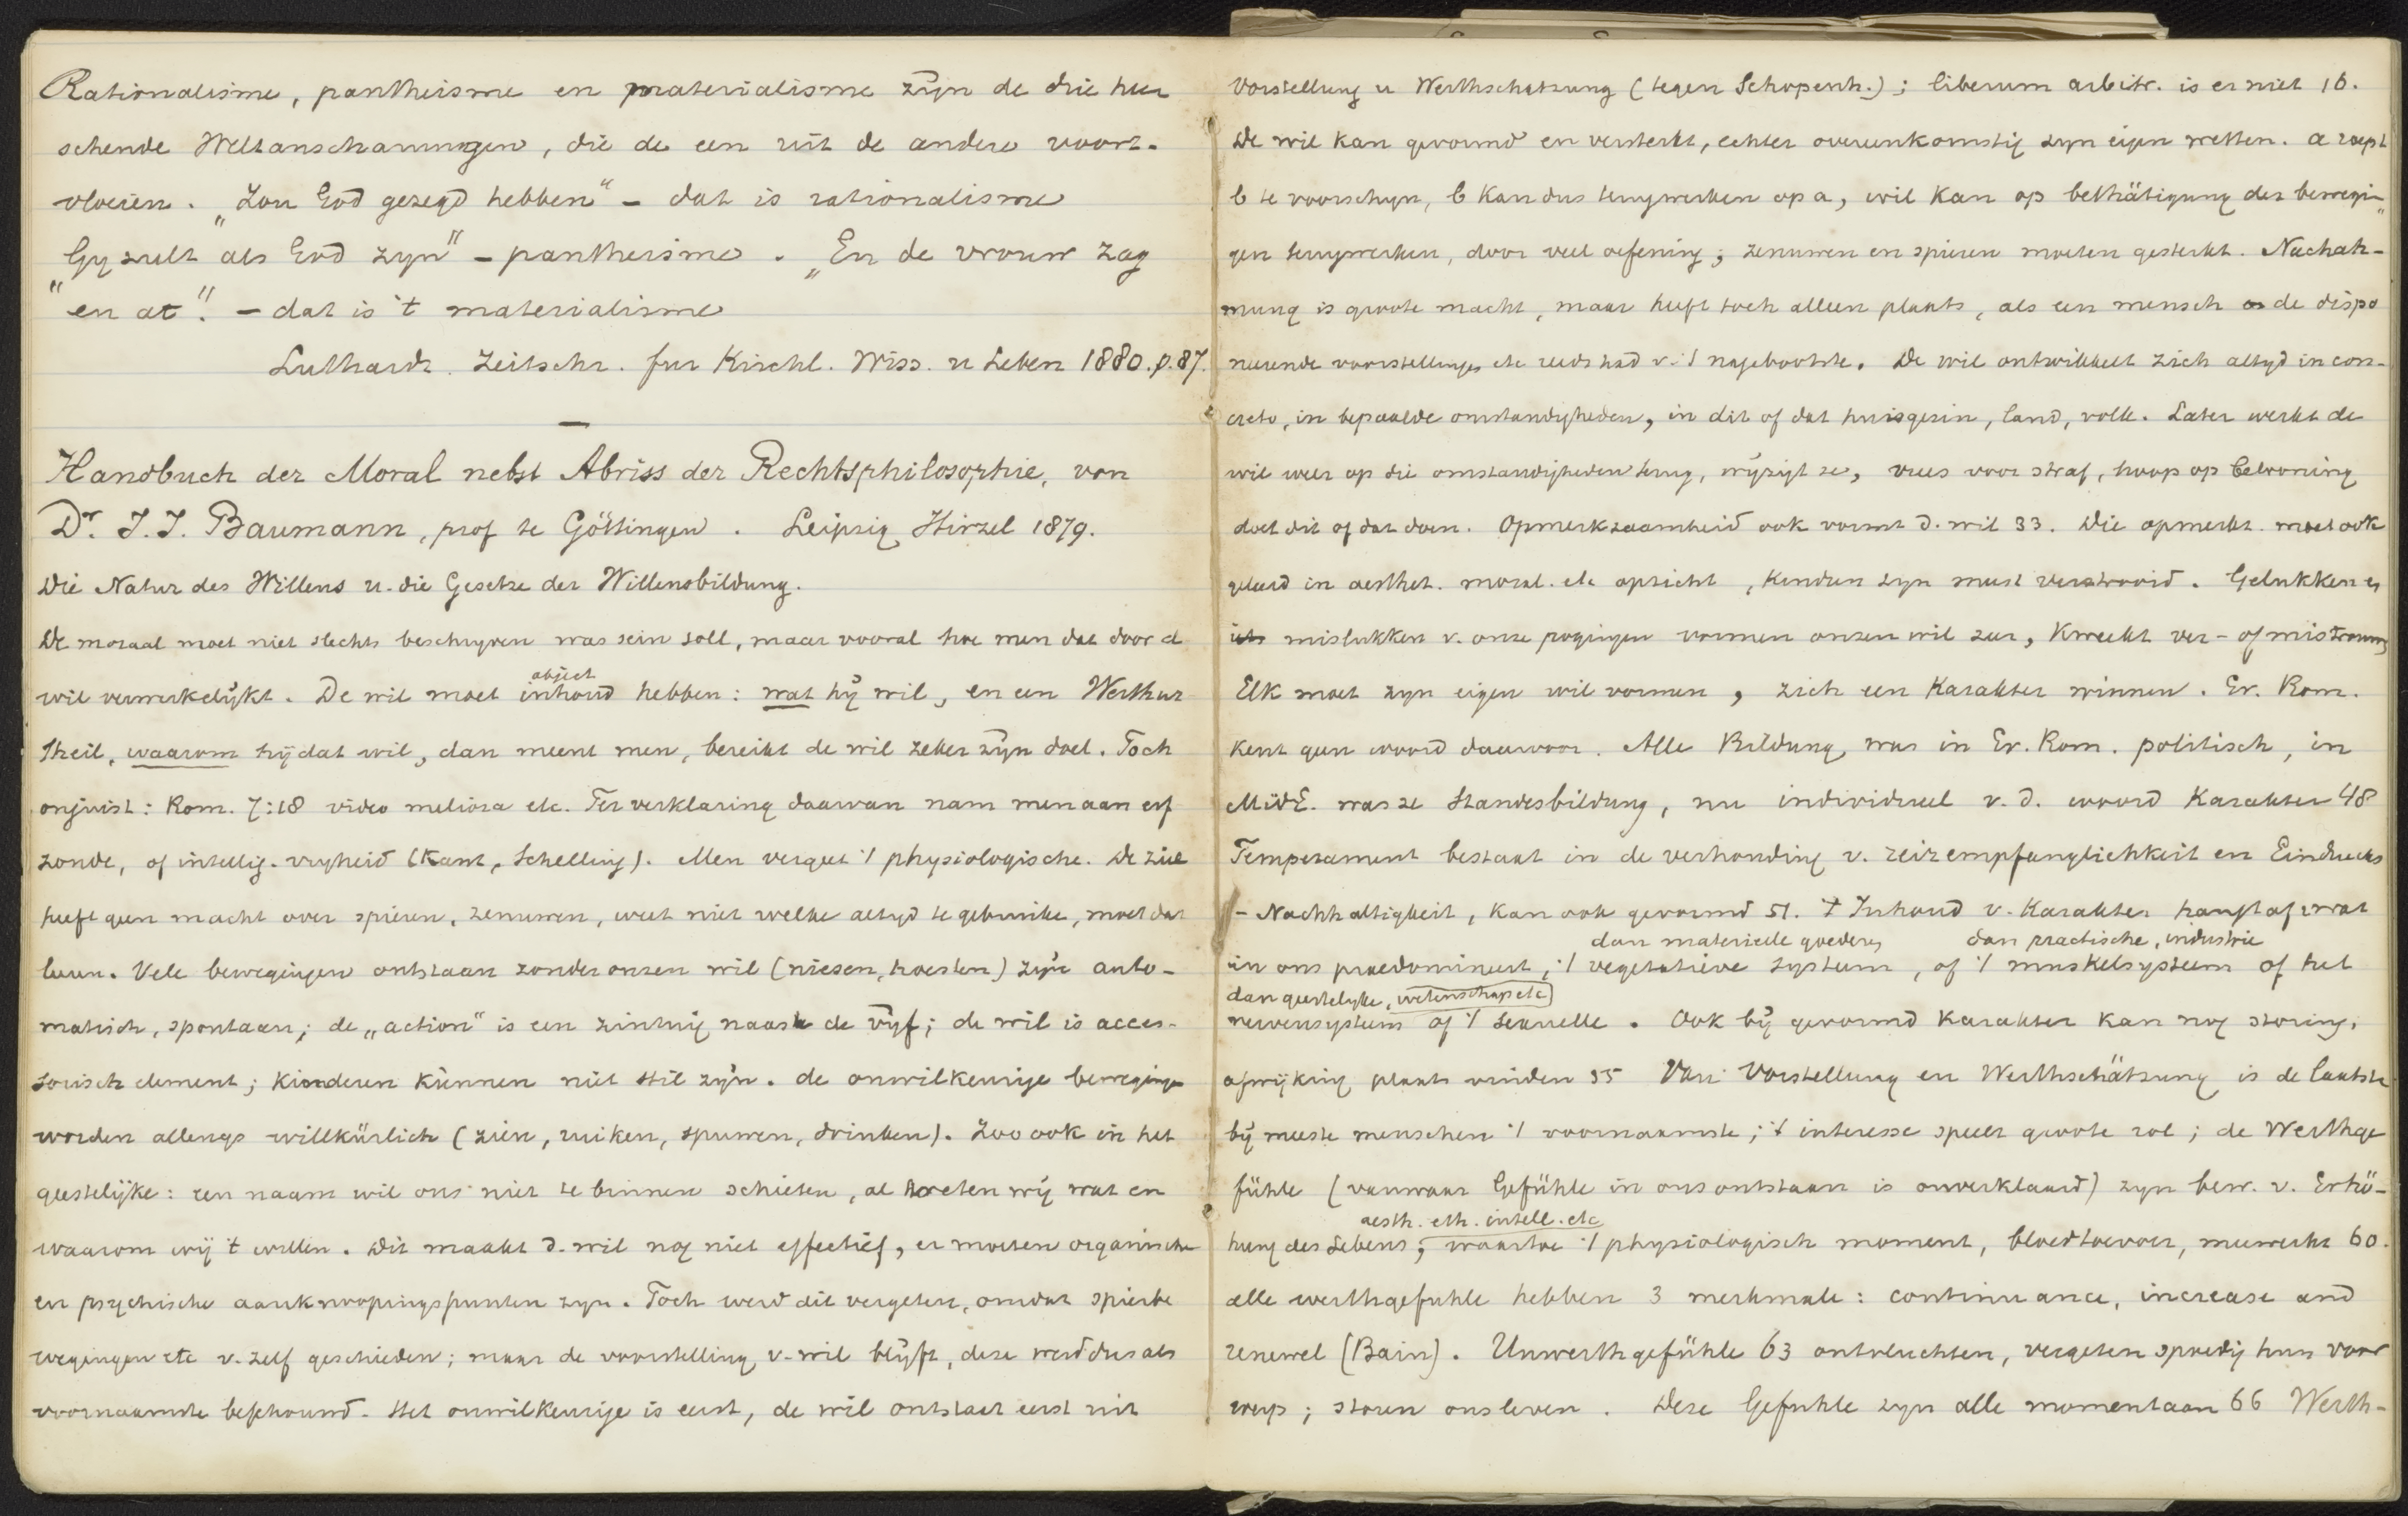 Rationalisme, pantheisme en materialisme zijn de drie heer
schende Weltanschauungen, die de een uit de andere voort-
vloeien. „Zou God gezegd hebben" – dat is rationalisme
„Gy zult als God zyn" – pantheisme. „En de vrouw zag
en at". – dat is 't materialisme
Luthardt. Zeitschr. fur Kirchl. Wiss. u Leben 1880. p. 87.
—
Handbuch der Moral nebst Abriss der Rechtsphilosophie, von
Dr. J. J. Baumann, prof te Göttingen. Leipzig Hirzel 1879.
Die Natur des Willens u. die Gesetze der Willensbildung.
De moraal moet niet slechts beschryven was sein soll, maar vooral hoe men dat door d
object
wil verwerkelijkt. De wil moet inhoud hebben: wat hij wil, en een Werthur
theil, waarom hij dat wil, dan meent men, bereikt de wil zeker zijn doel. Toch
onjuist: Rom. 7:18 video meliora etc. Ter verklaring daarvan nam men aan erf
zonde, of intellig. vryheid (Kant, Schelling). Men vergeet 't physiologische. De ziel
heeft geen macht over spieren, zenuwen, weet niet welke altyd te gebruike, moet dat
leeren. Vele bewegingen ontstaan zonder onzen wil (niesen, hoesten) zijn auto-
matisch, spontaan; de „action" is een zintuig naast de vijf; de wil is acces-
sorisch element; kinderen kunnen niet stil zijn. de onwilkeurige beweginge
worden allengs willkürlich (zien, ruiken, spuwen, drinken). Zoo ook in het
geestelijke: een naam wil ons niet te binnen schieten, al weten wij wat en
waarom wij 't willen. Dit maakt d. wil nog niet effectief, er moeten organische
en psychische aanknoopingspunten zyn. Toch werd dit vergeten, omdat spierbe
wegingen etc v. zelf geschieden; maar de voorstelling v. wil blijft, deze werd dus als
voornaamste beschouwd. Het onwilkeurige is eerst, de wil ontstaat eerst uit
Vorstellung u Werthschatzung (tegen Schopenh.); liberum arbitr. is er niet 16.
De wil kan gevormd en versterkt, echter overeenkomstig zyn eigen wetten. a roept
b te voorschyn, b kan dus terugwerken op a, wil kan op bethätigung der bewegin-
gen terugwerken, door veel oefening; zenuwen en spieren moeten gesterkt. Nachah-
mung is groote macht, maar heeft toch alleen plaats, als een mensch de dispo
neerende voorstellingen etc reeds had v. 't nagebootste. De wil ontwikkelt zich altyd in con-
creto, in bepaalde omstandigheden, in dit of dat huisgezin, land, volk. Later werkt de
wil weer op die omstandigheden terug, wijzigt ze, vrees voor straf, hoop op belooning
doet dit of dat doen. Opmerkzaamheid ook vormt d. wil 33. Die opmerkt. moet ook
geleerd in aesthet. moral. etc opzicht, kinderen zyn meest verstrooid. Gelukken en
mislukken v. onze pogingen vormen onzen wil zeer, kweekt ver- of mistrouwen
Elk moet zyn eigen wil vormen, zich een Karakter winnen. Gr. Rom.
kent geen woord daarvoor. Alle Bildung was in Gr. Rom. politisch, in
MidE. was ze Standesbildung, nu individueel v. d. woord Karakter 48
Temperament bestaat in de verhouding v. reizempfänglichkeit en Eindrucks
– Nachhaltigkeit, kan ook gevormd 51. 't Inhoud v. Karakter hangt af v. wat
dan materieele goederen dan practische, industrie
in ons praedomineert, 't vegetatieve systeem, of 't muskelsysteem of het
dan geestelyke, wetenschap etc
nervensysteem of 't sexueele. Ook bij gevormd karakter kan nog storing,
afwijking plaats vinden 55 Van Vorstellung en Werthschätzung is de laatste
bij meeste menschen 't voornaamste; 't interesse speelt groote rol; de Werthge
fühle (vanwaar Gefühle in ons ontstaan is onverklaard) zyn bew. v. Erhö-
aesth. eth. intell. etc
hung des Lebens; waartoe 't physiologisch moment, bloedtoevoer, meewerkt 60.
alle werthgefuhle hebben 3 merkmale: continuance, increase and
renewel (Bain). Unwerthgefühle 63 ontvluchten, vergeten spoedig hun voor
werp; storen ons leven. Deze Gefuhle zyn alle momentaan 66 Werth-